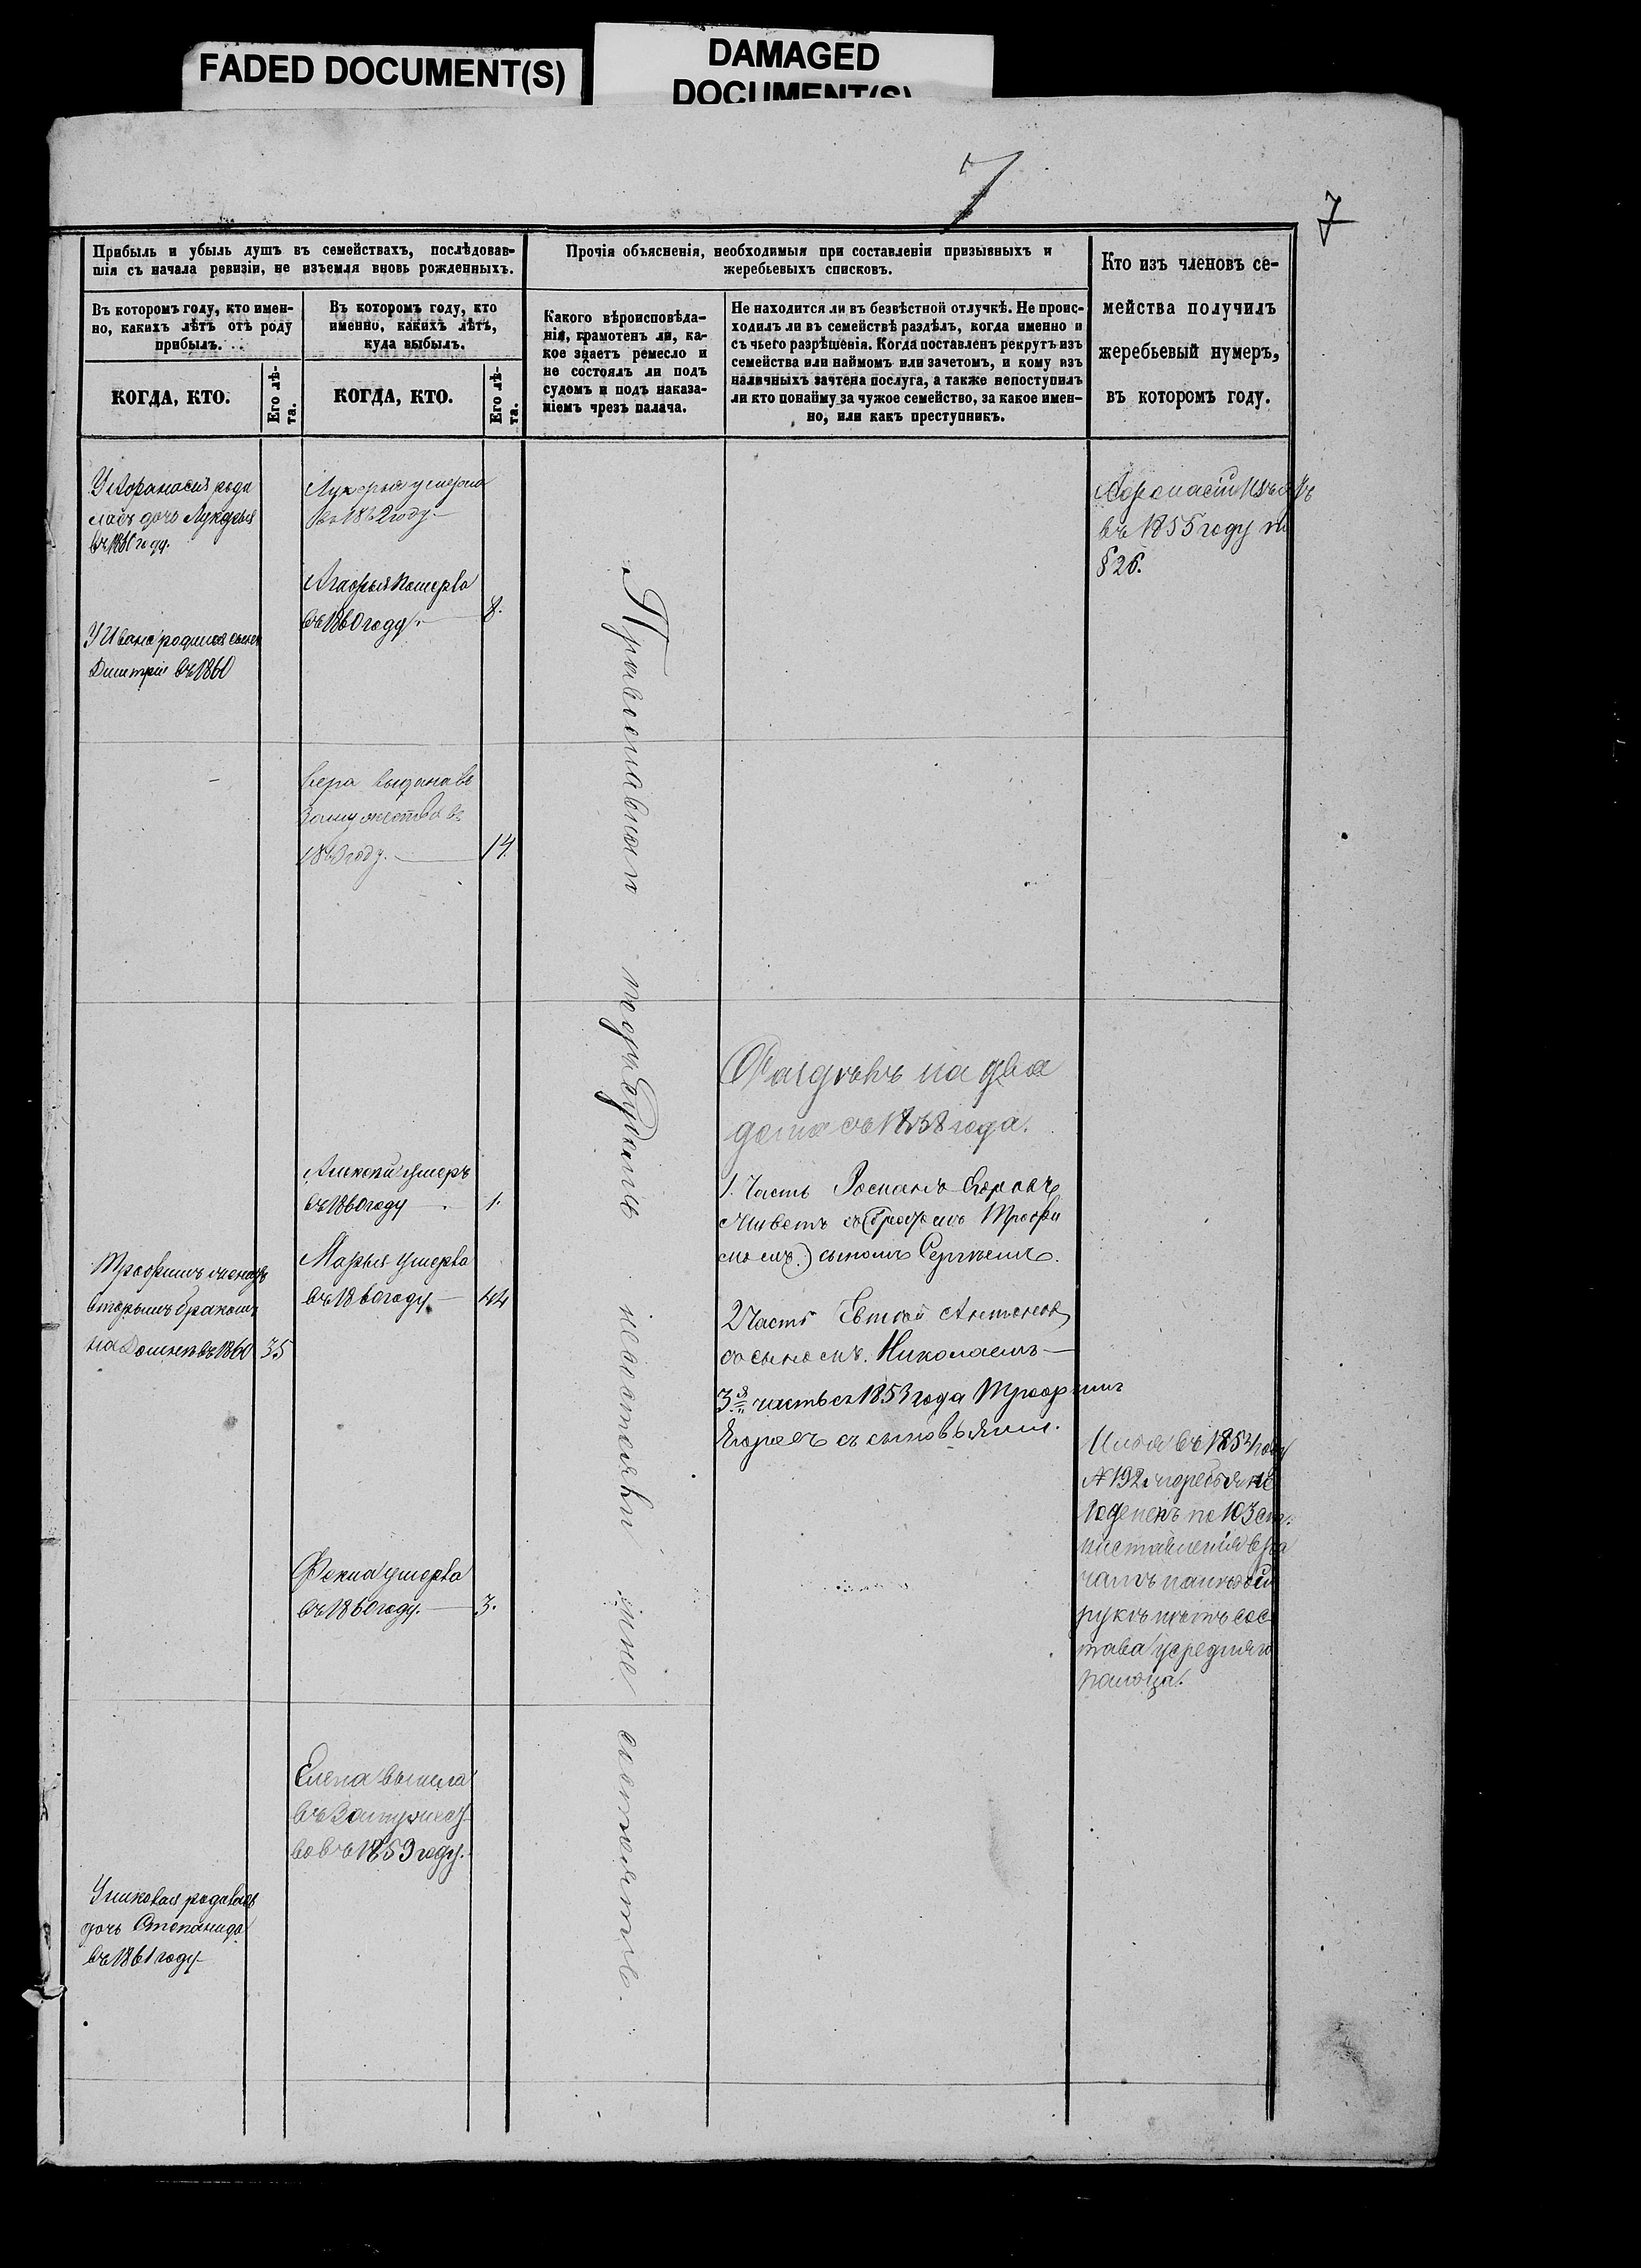 FADED DOCUMENT(S)
DAMAGED
DOCUMENT(S)
7
7
Прибыль и убыль душъ въ семействахъ, послѣдовав-
шія съ начала ревизіи, не изъемля вновь рожденныхъ.
Прочія объясненія, необходимыя при составленіи призывныхъ и
жеребьевыхъ списковъ.
Кто изъ членовъ се-
мейства получилъ
жеребьевый нумеръ,
въ которомъ году.
Въ которомъ году, кто имен-
но, какихъ лѣтъ отъ роду
прибылъ.
Въ которомъ году, кто
именно, какихъ лѣтъ,
куда выбылъ.
Какого вѣроисповѣда-
нія, грамотенъ ли, ка-
кое знаетъ ремесло и
не состоялъ ли подъ
судомъ и подъ наказа-
ніемъ чрезъ палача.
Не находится ли въ безвѣстной отлучкѣ. Не проис-
ходилъ ли въ семействѣ раздѣлъ, когда именно и
съ чьего разрѣшенія. Когда поставленъ рекрутъ изъ
семейства или наймомъ или зачетомъ, и кому изъ
наличныхъ зачтена послуга, а также непоступилъ
ли кто понайму за чужое семейство, за какое имен-
но, или какъ преступникъ.
КОГДА, КТО.
Его лѣ-
та.
КОГДА, КТО.
Его лѣ-
та.
У Афанасія роди
лась дочь Лукерья
въ 1861 году.
У Ивана родился сынъ
Дмитрій въ 1860
Трофимъ женатъ
вторымъ бракомъ
на въ 1860 35
У родилась
дочь Степанида
въ 1861 году
Лукерья умерла
въ 1862 году
Агафья Померла
въ 1860 году 8.
Вера выдана въ
замужество въ
году. 14.
Алексѣй умеръ
въ 1860 году 1.
Марья умерла
въ 1860 году 44
Фекла умерла
въ 1860 году. 3.
Елена вышла
въ Замужест-
во въ 1859 году.
Православнаго подъ судомъ несостояли и не состоятъ.
Раздѣлъ на два
дома съ 1858 года.
1. Часть
Живетъ съ (братомъ Трофи
момъ.) сыномъ Сергѣемъ.
2 Часть Евтей Антоновъ
со сыномъ. Николаемъ
3я часть съ 1853 года Трофимъ
съ сыновьями.
Афонасій
въ 1855 году по
§ 26.
въ 1854 году
№ 192. жеребья не
годенъ по 103 ст.
наставленія вра
чамъ на лѣвой
рукѣ нѣтъ сос
тава у средняго
пальца.